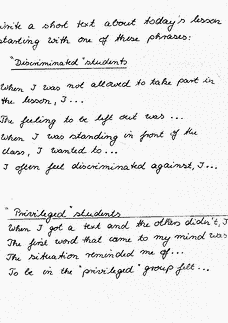 Write a short text about today's lesson
starting with one of these phrases:
"Discriminated" students
When I was not allowed to take part in
the lesson, I...
The feeling to be left out was ...
When I was standing in front of the
class, I wanted to...
I often feel discriminated against, I...
"Privileged" students
When I got a text and the others didn't, I
The first word that came to my mind was
The situation reminded me of...
To be in the "privileged" group felt...